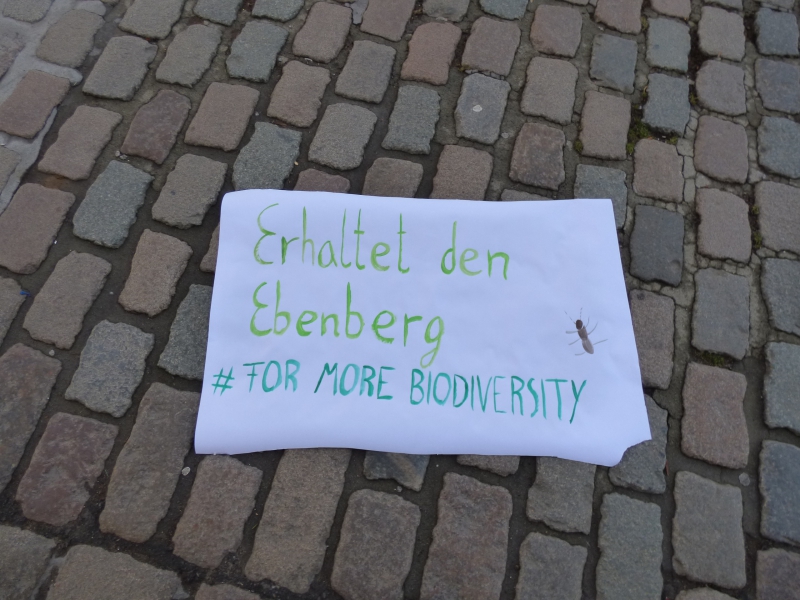 Erhaltet den
Ebenberg
# FOR MORE BIODIVERSITY